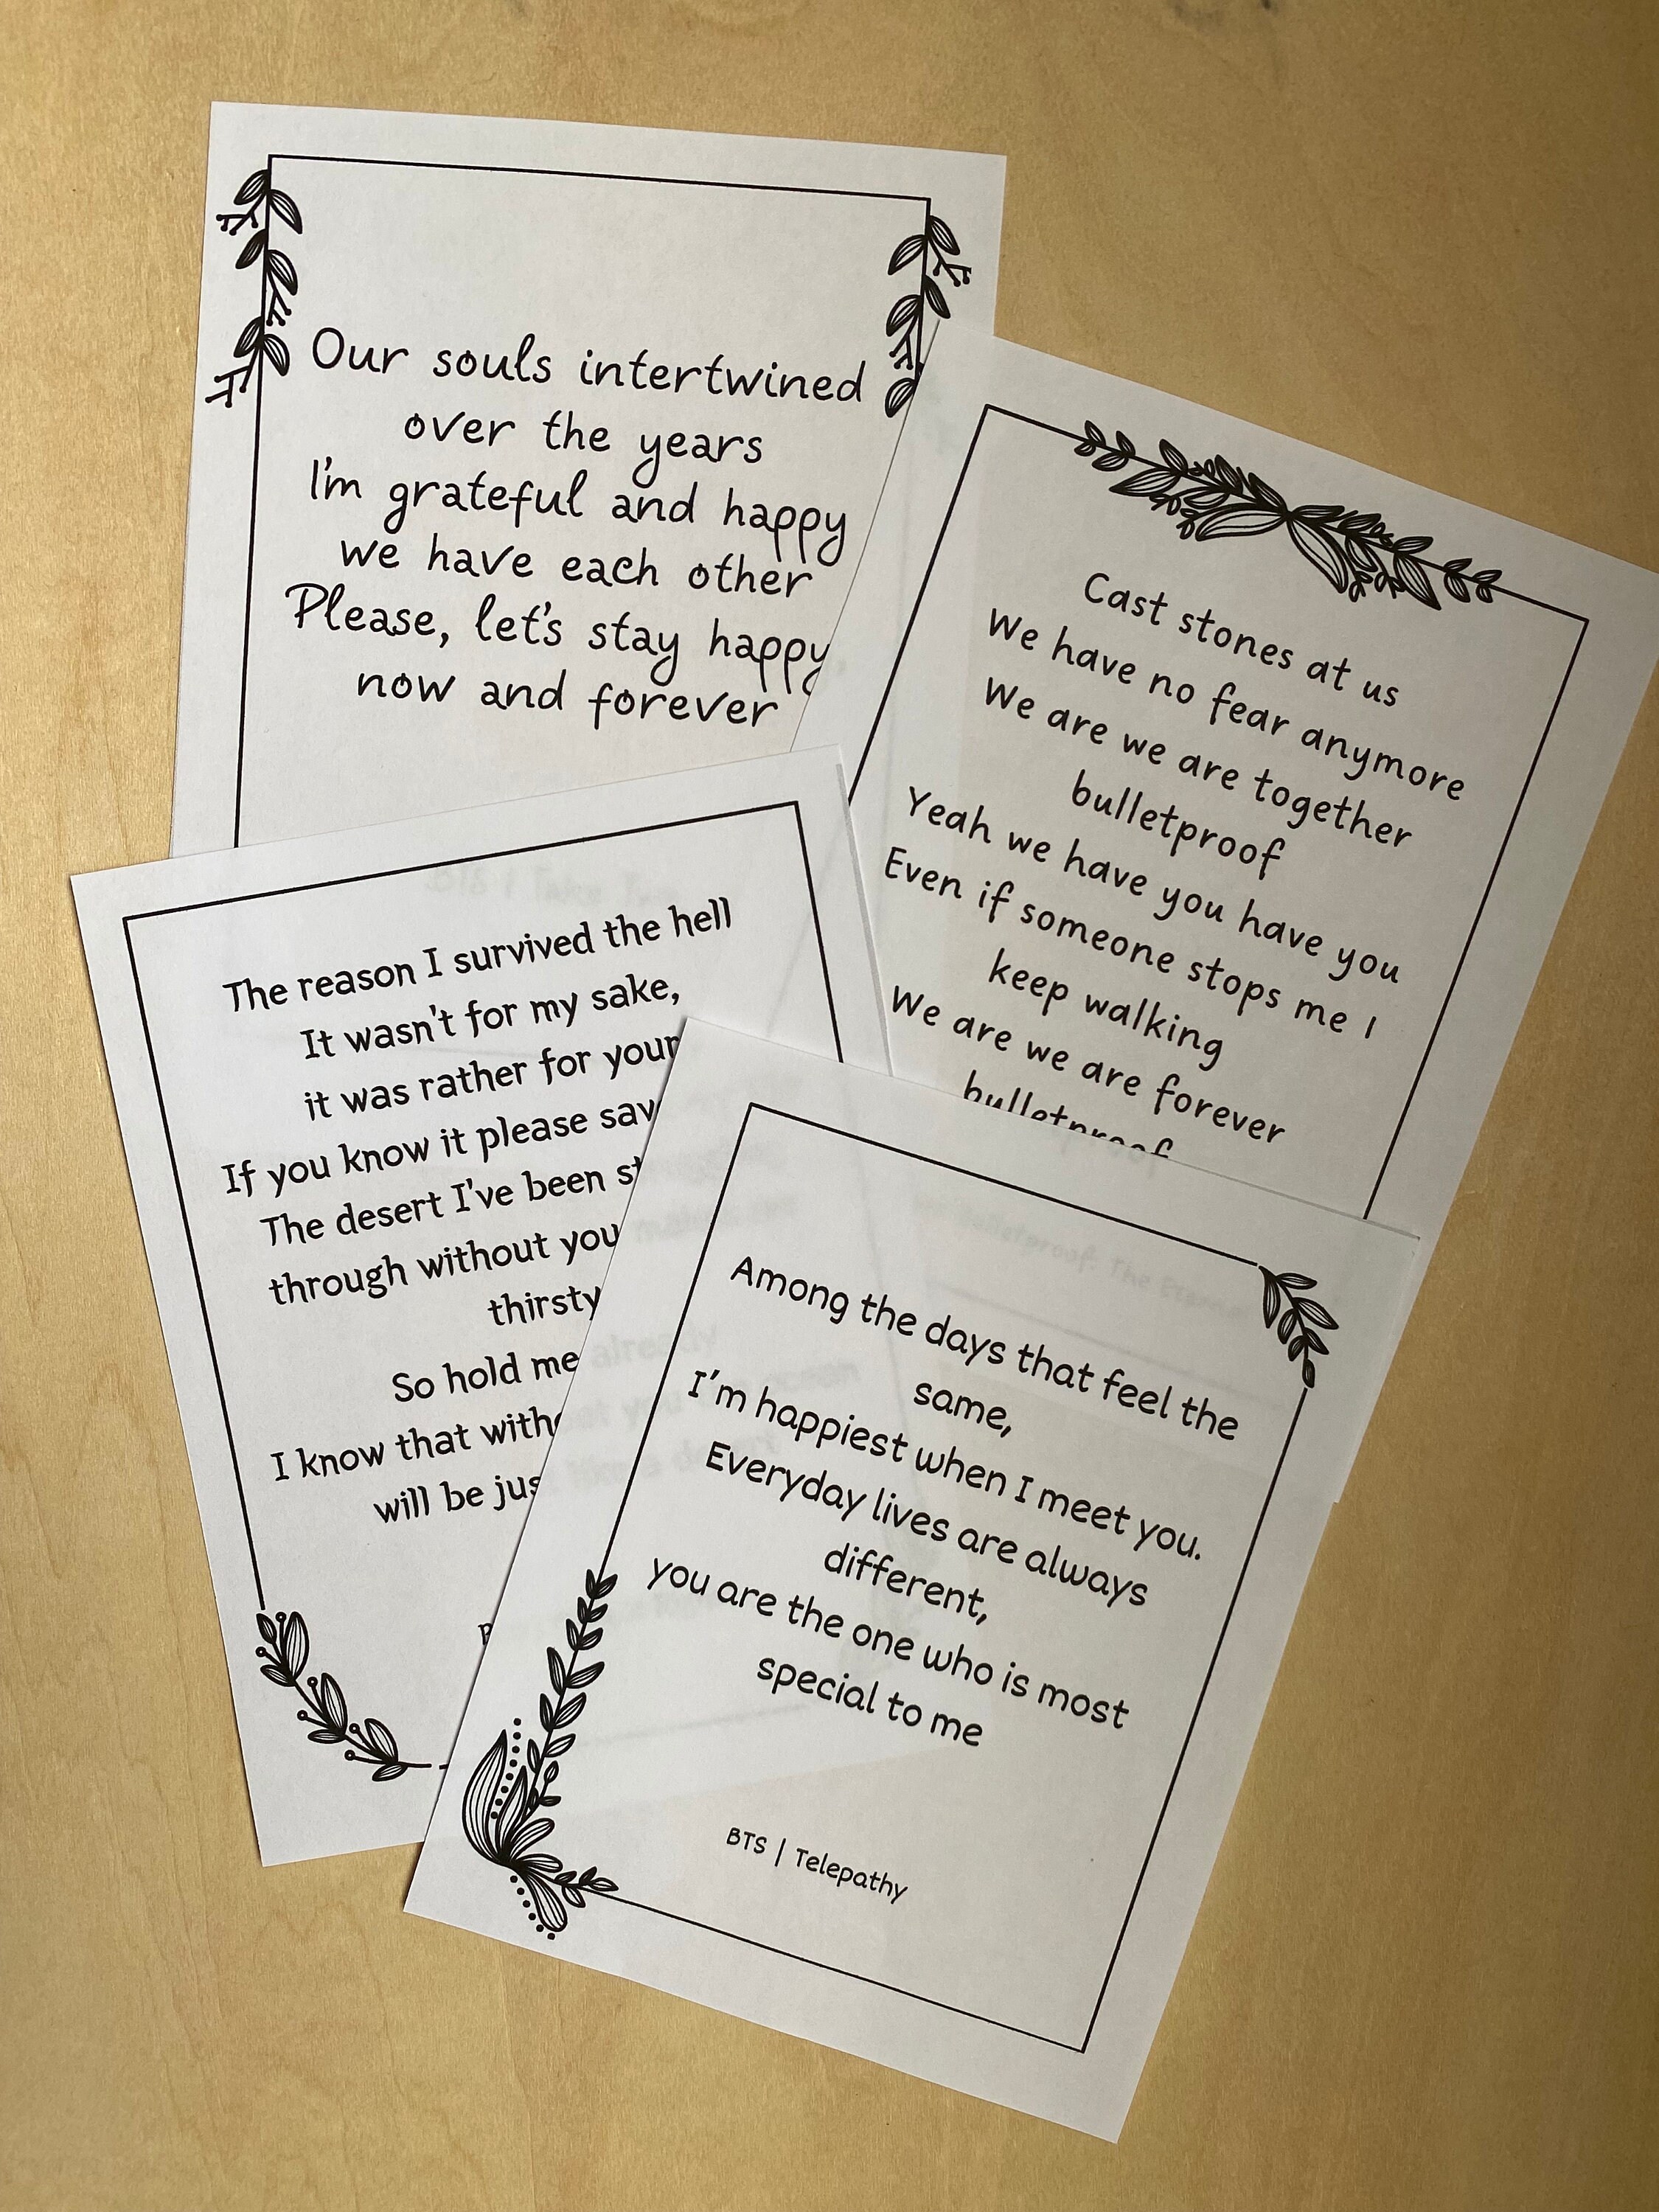 Our souls intertwined
over the years
I'm grateful and happy
we have each other
Please, let's stay happy
now and forever
BTS | Take Two
Cast stones at us
We have no fear anymore
We are we are together
bulletproof
Yeah we have you have you
Even if someone stops me I
keep walking
We are we are forever
bulletproof
The reason I survived the hell
It wasn't for my sake,
it was rather for your
If you know it please
The desert I've been
through without you
thirsty
So hold me
I know that
will be
Among the days that feel the
same,
I'm happiest when I meet you.
Everyday lives are always
different,
you are the one who is most
special to me
BTS | Telepathy